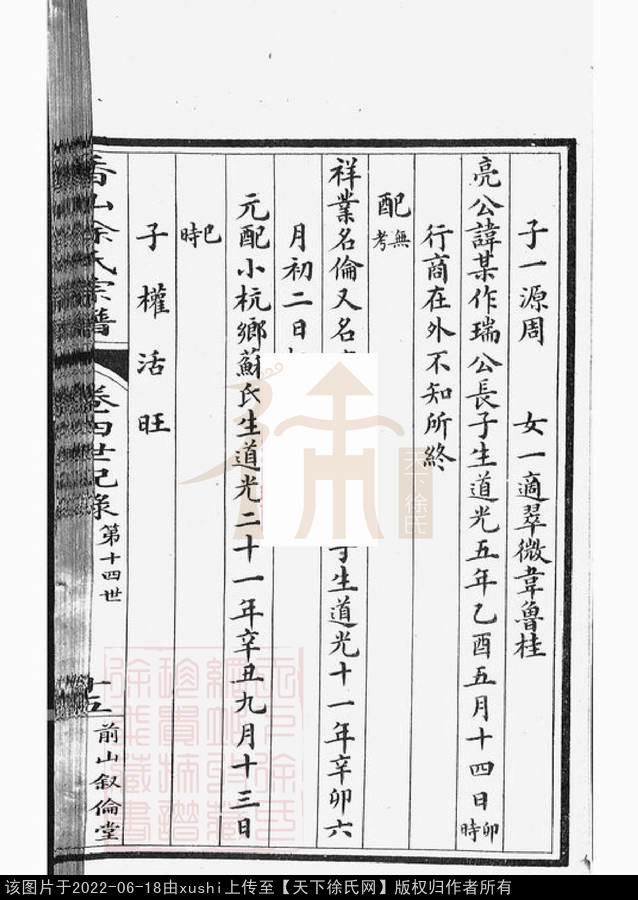 子一源周 女一適翠微韋魯桂
亮公諱某作瑞公長子生道光五年乙酉五月十四日卯時
行商在外不知所終
配無考
祥業名倫又名 子生道光十一年辛卯六
月初二日
元配小杭鄉蘇氏生道光二十一年辛丑九月十三日
巳時
子權活旺
香山徐氏宗譜 卷四世紀錄 第十四世 十五 前山叙倫堂
天下徐氏
该图片于2022-06-18由xushi上传至【天下徐氏网】版权归作者所有